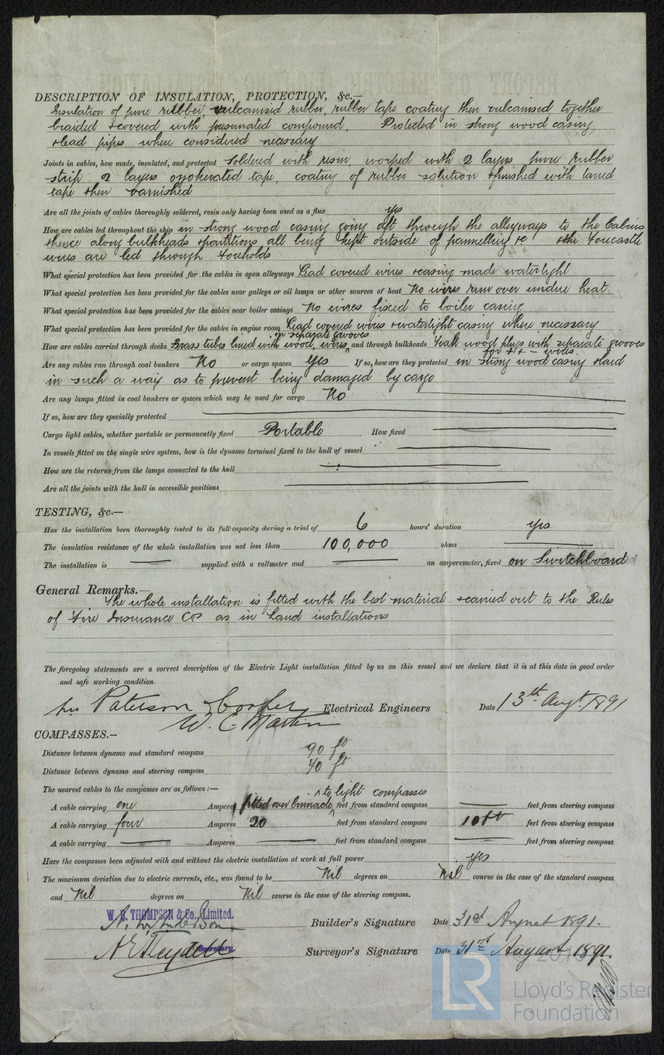 DESCRIPTION OF INSULATION, PROTECTION, &c.—
Insulation of pure rubber, vulcanised rubber, rubber tape coating then vulcanised together
braided & covered with preservated compound. Protected in strong wood casing
& lead pipes where considered necessary
Joints in cables, how made, insulated, and protected Soldered with resin worked with 2 layers pure rubber
strip 2 layers ozokerated tape, coating of rubber solution & finished with tarred
tape then varnished
Are all the joints of cables thoroughly soldered, resin only having been used as a flux yes
How are cables led throughout the ship in strong wood casing going aft through the alleyways to the Cabins
thence along bulkheads & partitions all being kept outside of pannelling &c & the Forecastle
wires are led through foreholds
What special protection has been provided for the cables in open alleyways Lead covered wires & casing made watertight
What special protection has been provided for the cables near galleys or oil lamps or other sources of heat No wires run over undue heat
What special protection has been provided for the cables near boiler casings No wires fixed to boiler casing
What special protection has been provided for the cables in engine room Lead covered wires & watertight casing where necessary
in separate grooves
How are cables carried through decks Brass tubes lined with wood, wires and through bulkheads Teak wood plugs with separate grooves
for + & - wires
Are any cables run through coal bunkers No or cargo spaces Yes If so, how are they protected in strong wood casing & laid
in such a way as to prevent being damaged by cargo
Are any lamps fitted in coal bunkers or spaces which may be used for cargo No
If so, how are they specially protected
Cargo light cables, whether portable or permanently fixed Portable How fixed
In vessels fitted on the single wire system, how is the dynamo terminal fixed to the hull of vessel
How are the returns from the lamps connected to the hull
Are all the joints with the hull in accessible positions
TESTING, &c.—
Has the installation been thoroughly tested to its full capacity during a trial of 6 hours' duration yes
The insulation resistance of the whole installation was not less than 100,000 ohms
The installation is supplied with a voltmeter and an amperemeter, fixed on Switchboard
General Remarks.
The whole installation is fitted with the best material & carried out to the Rules
of Fire Insurance Cos as in Land installations
The foregoing statements are a correct description of the Electric Light installation fitted by us on this vessel and we declare that it is at this date in good order
and safe working condition.
Paterson & Cooper Electrical Engineers Date 13th Augt 1891
W. C. Martin
COMPASSES.—
Distance between dynamo and standard compass 90 ft
Distance between dynamo and steering compass 70 ft
The nearest cables to the compasses are as follows:— to light compasses
A cable carrying one Amperes fitted over binnacle feet from standard compass feet from steering compass
A cable carrying four Amperes 20 feet from standard compass 10 ft feet from steering compass
A cable carrying Amperes feet from standard compass feet from steering compass
Have the compasses been adjusted with and without the electric installation at work at full power yes
The maximum deviation due to electric currents, etc., was found to be Nil degrees on Nil course in the case of the standard compass
and Nil degrees on Nil course in the case of the steering compass.
W. B. THOMPSON & Co., Limited.
Builder's Signature Date 31st August 1891.
Surveyor's Signature Date 31st August 1891.
LR
Lloyd's Register
Foundation